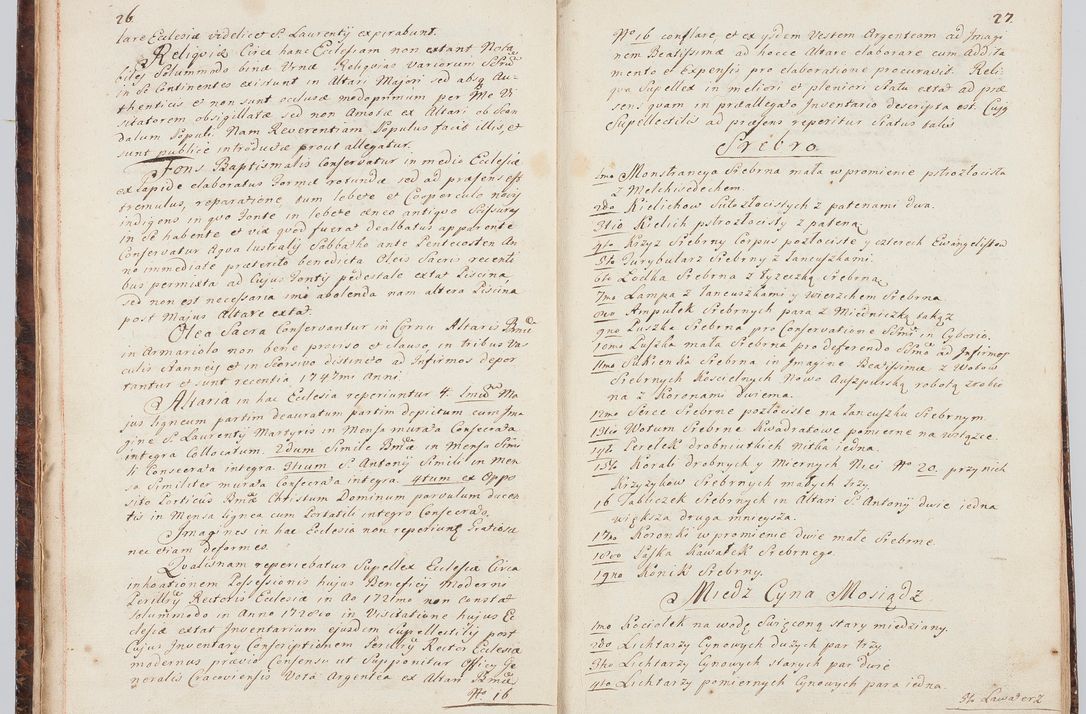 26.
lare Ecclesiæ videlicet S. Laurentij expirabunt.
Reliqviæ Circa hanc Ecclesiam non extant Nota
biles Solummodo binæ Urnæ Reliqvias variorum
in Se Continentes existunt in Altari Majori sed absq Au-
thenticis et non sunt occlusæ modo primum per Me Vi
sitatorem obsigillatæ sed non Amotæ ex Altari ob Scan
dalum Populi. Nam Reverentiam Populus facit illis, et
sunt publice introductæ prout allegatur.
Fons Baptismalis Conservatur in medio Ecclesiæ
ex lapide elaboratus Formæ rotundæ sed ad præsens est
tremulus, reparatione, tum lebete et Coopercula novis
indigens in qvo Fonte in lebete æneo antiqvo Scissuras
in Se habente et vix qvod fuerat dealbatus apparente
Conservatur Aqva lustralis Sabbatho ante Pentecosten An
no immediate præterito benedicta Oleis Sacris recenti
bus permixta ad Cujus Fontis pedestale extat Piscina
sed non est necessaria imo abolenda nam altera Piscina
post Majus Altare extat.
Olea Sacra Conservantur in Cornu Altaris
in Armariolo non bene proviso et Clauso, in tribus Va
sculis Stanneis et in Seorsivo distincto ad Infirmos depor
tantur et sunt recentia 1747mi Anni.
Altaria in hac Ecclesia reperiuntur 4. 1mum Ma
jus ligneum partim deauratum partim depictum cum Ima
gine S. Laurentij Martyris in Mensa murata Consecrata
integra Collocatum. 2dum Simile in Mensa Simi
li Consecrata integra. 3tium S. Antonij Simili in men
sa Similiter murata Consecrata integra. 4tum ex Oppo
sito Porticus Christum Dominum parvulum ducen
tis in Mensa lignea cum Portatili integro Consecrato.
Imagines in hac Ecclesia non reperiunt Gratiosæ
nec etiam deformes.
Qvalisnam reperiebatur Supellex Ecclesiæ Circa
inchoationem Possessionis hujus Beneficij Moderni
Perillris Rectoris Ecclesiæ in Ao 1721mo non constat
Solummodo in Anno 1728vo in Visitatione hujus Ec
clesiæ extat Inventarium ejusdem supellectilis post
Cujus Inventarij Conscriptionem Perillris Rector Ecclesiæ
modernus prævio Consensu ut Supponitur Officij Ge
neralis Cracoviensis Vota Argentea ex Altari
No. 16
27.
No. 16 conflare, et ex ysdem Vestem Argenteam ad Imagi
nem Beatissimæ ad hocce Altare elaborare cum Addita
mento et Expensis pro elaboratione procuravit. Reli
qva Supellex in meliori et pleniori Statu extat ad præ
sens qvam in præallegato Inventario descripta est. Cujq
Supellectilis ad præsens reperitur Status talis
Srebro.
1mo Monstrancya Srebrna mała w promienie pstrozłocista
z Melchisedechem.
2do Kielichow Subzłocistych z patenami dwa.
3tio Kielich pstrozłocisty z pateną
4to Krzyz Srebrny Corpus pozłociste y czterech Ewangelistow
5to Turybularz Srebrny z Łancuszkami.
6to Łodka Srebrna z łyzeczką Srebrną
7mo Lampa z Łancuszkami y wierzchem Srebrna
8vo Ampułek Srebrnych para z Miedniczką takąz
9no Puszka Srebrna pro Conservatione in Cyborio.
10mo Puszka mała Srebrna pro deferendo ad Infirmos
11mo Sukienka Srebrna in Imagine Beatissimæ z Wotow
Srebrnych Koscielnych Nowo Auszpurską robotą zrobio
na z Koronami dwiema.
12mo Serce Srebrne pozłociste na łancuszku Srebrnym.
13tio Wotum Srebrne Kwadratowe pomierne na wstązce.
14to Perełek drobniutkich Nitka iedna.
15to Korali drobnych y Miernych Nici No 20. przynich
Krzyzykow Srebrnych małych trzy
16 Tabliczek Srebrnych in Altari S. Antonij dwie iedna
większa druga mnieysza.
17mo Koronki w promienie dwie małe Srebrne.
18vo Kawałek Srebrnego.
19no Konik Srebrny.
Miedz Cyna Mosiądz
1mo Kociołek na wodę Swięconą stary miedziany.
2do Lichtarzy Cynowych duzych par trzy
3tio Lichtarzy Cynowych starych par dwie
4to Lichtarzy pomiernych Cynowych para iedna.
5to Lawaterz